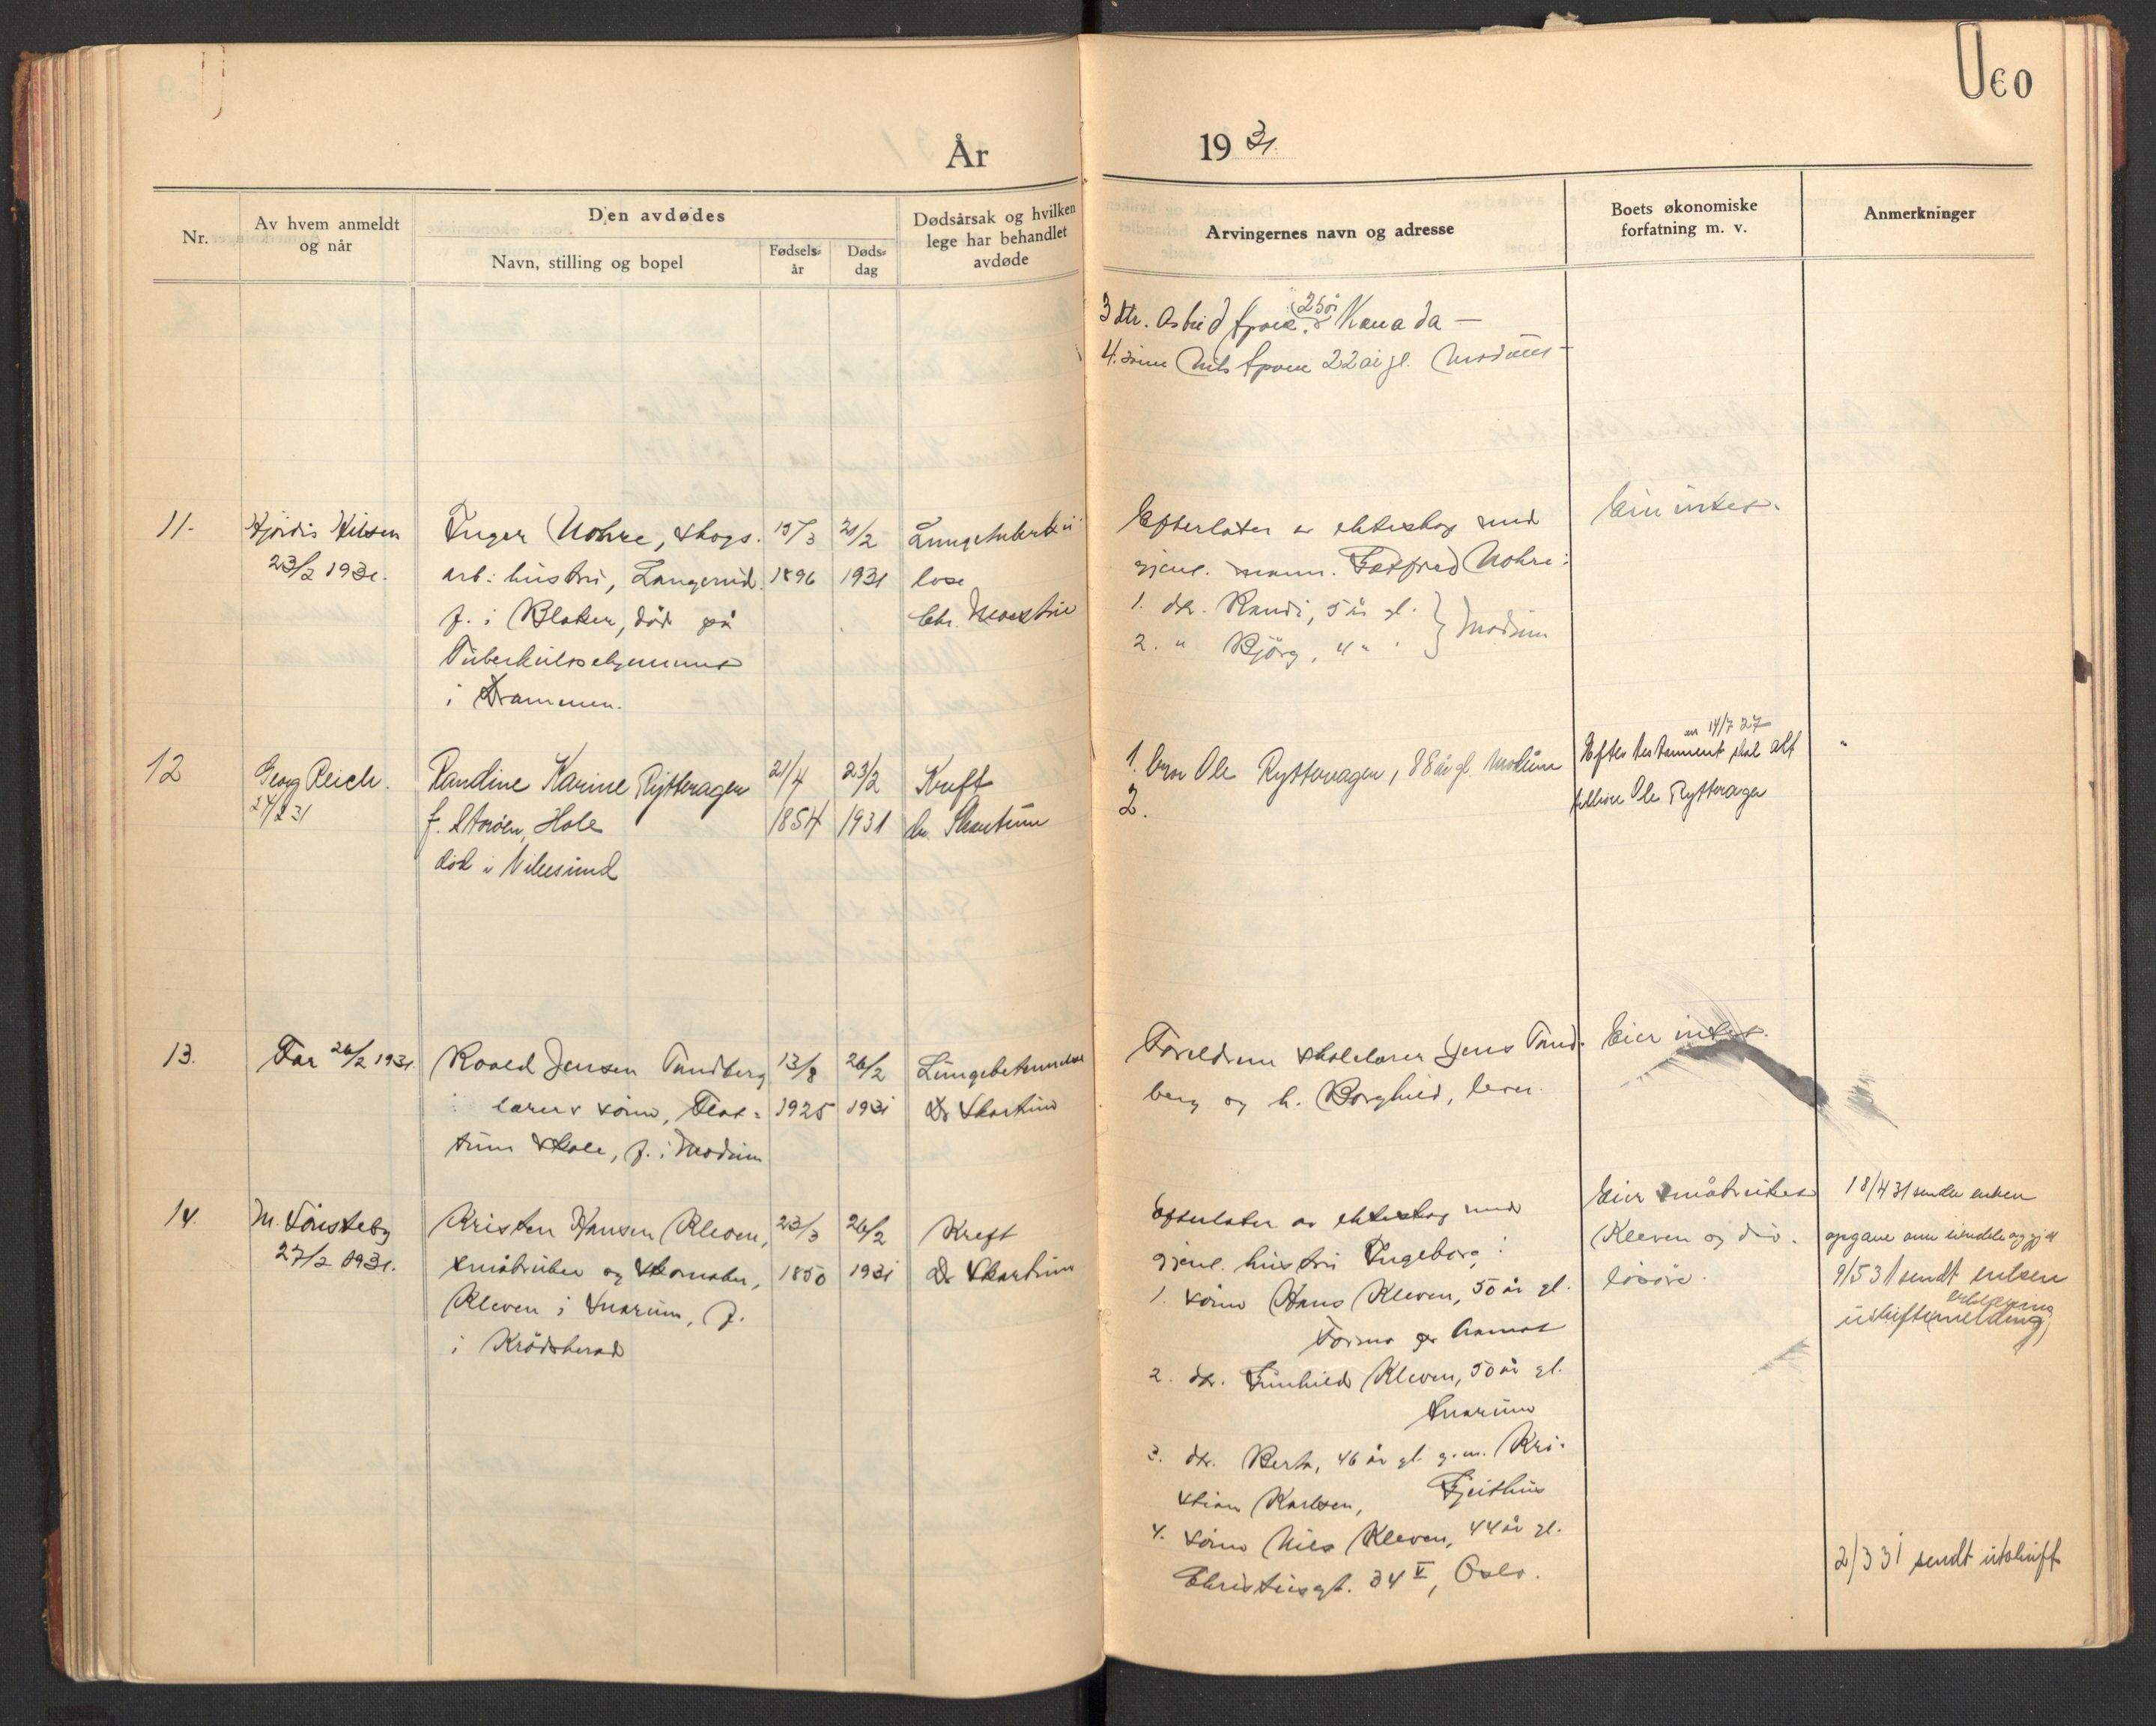 60
År 1931.
Nr.
Av hvem anmeldt
og når
Den avdødes
Navn, stilling og bopel
Fødsels-
år
Døds-
dag
Dødsårsak og hvilken
lege har behandlet
avdøde
Arvingernes navn og adresse
Boets økonomiske
forfatning m. v.
Anmerkninger
3 dtr. Astrid (25 år Kanada —
4. sønn Nils 22 år gl. Modum —
11.
Hjördis Nilsen
23/2 1931.
Inger Mohre, skogs-
arb: hustru, Langerud.
f. i Blaker, död på
Tuberkulosehjemmet
i Drammen.
15/3
1896
21/2
1931
Lungetuberku
lose
Chr.
Efterlater er ekteskap med
gjenl. mann. Mohre:
1. dtr. Randi, 5 år gl.
2. " Björg, 4 " " } Modum
Eier intet.
12
Georg Reich.
24/2 31
Randine Karine Rytteragen
f. Storøen, Hole
död i Vikersund
21/4
1854
23/2
1931
Kreft
Dr. Skartum
1. bror Ole Rytteragen, 88 år gl. Modum
2.
14/7 27
Efter testament skal alt
tilhøre Ole Rytterager
13.
Far 26/2 1931.
Roald Jensen Tandberg
lærers sönn,
skole, f. i Modum
13/8
1925
26/2
1931
Lungebetennelse
Dr Skartum
Foreldrene skolelærer Jens Tand-
berg og h. Borghild, lever.
Eier intet.
14.
27/2 1931.
Kristen Hansen Kleven,
småbruker og skomaker,
Kleven i Snarum, f.
i Krödsherad
23/3
1850
26/2
1931
Kreft
Dr Skartum
Efterlater av ekteskap med
gjenl. hustru Ingeborg:
1. sönn Hans Kleven, 50 år gl.
2. dtr. Gunhild Kleven, 50 år gl.
Snarum
3. dtr. Berta, 46 år gl. g.m. Kri-
stian Karlsen, Geithus
4. sönn Nils Kleven, 44 år gl.
34 V, Oslo.
Eier småbruket
Kleven og div.
lösöre.
18/4 31 sendte enken
opgave over eiendele og gjeld
9/5 31 sendt enken
erklæring
uskiftemelding
2/3 31 sendt utskrift